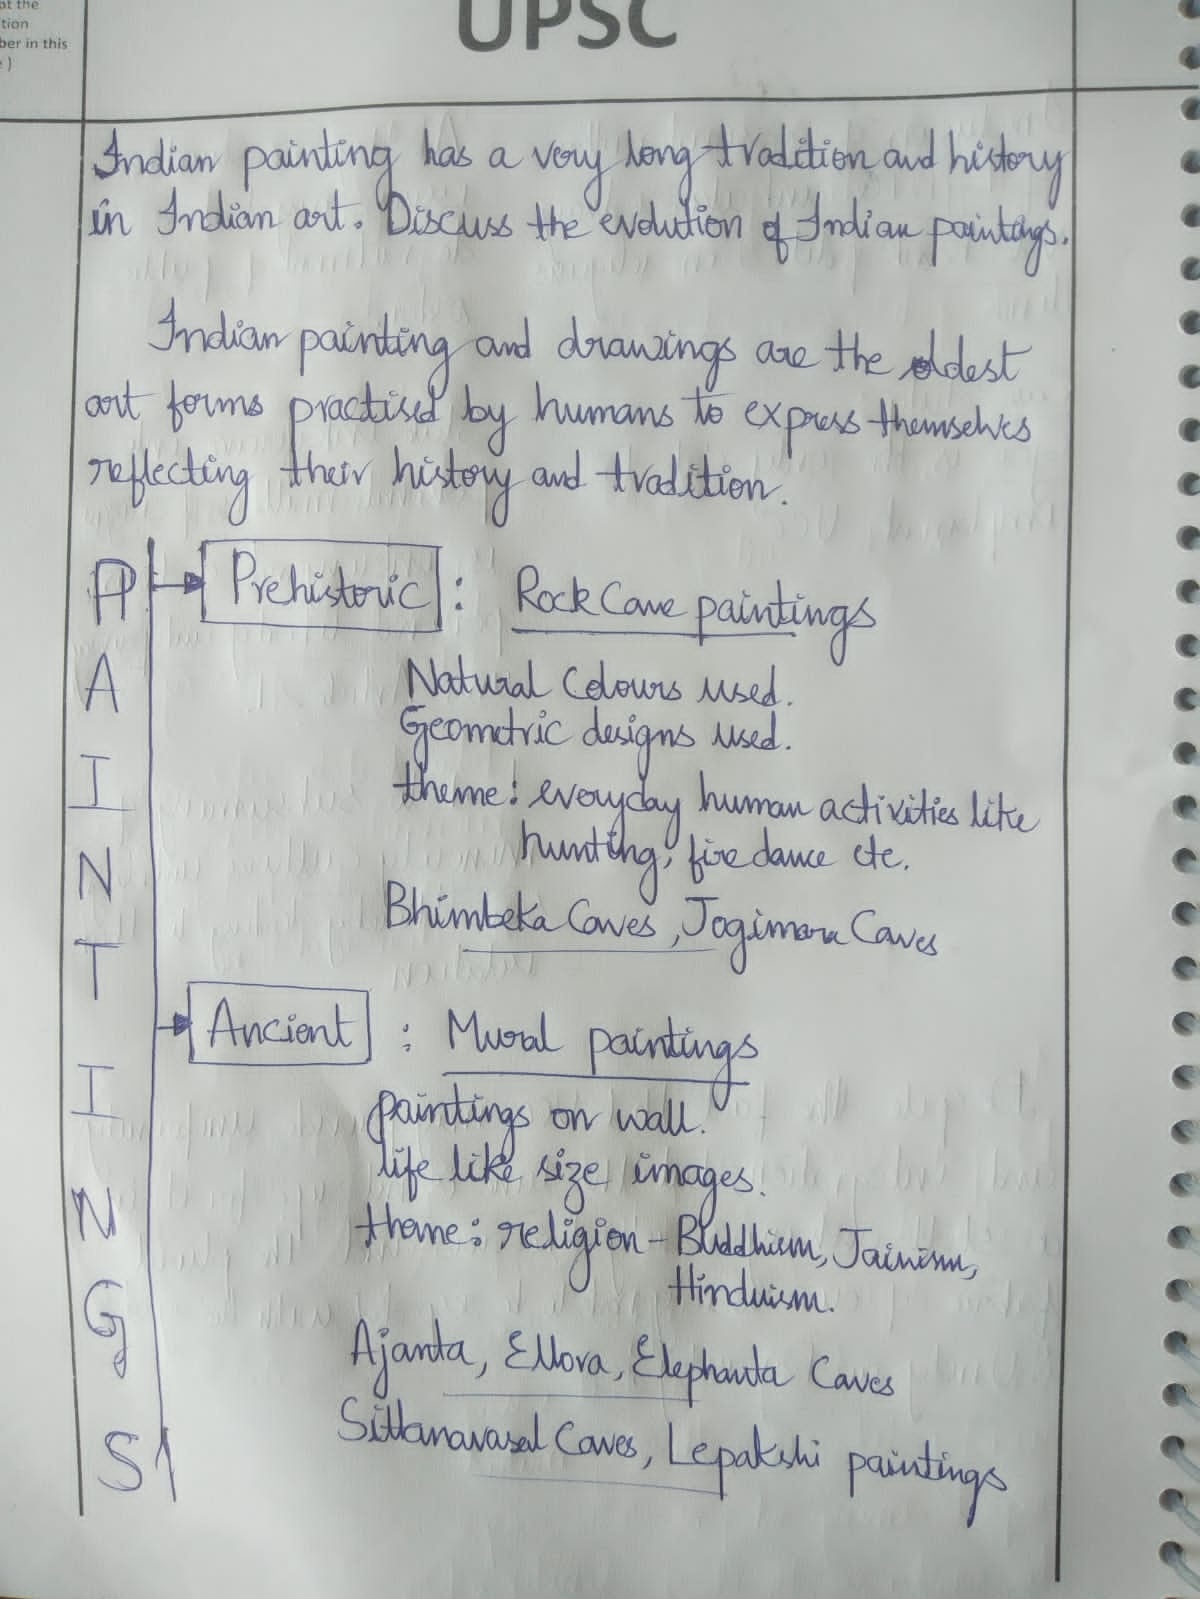 ot the
tion
ber in this
e)
UPSC
Indian painting has a very long tradition and history
in Indian art. Discuss the evolution of Indian paintings.
Indian painting and drawings are the oldest
art forms practised by humans to express themselves
reflecting their history and tradition.
PAINTINGS
Prehistoric : Rock Cave paintings
Natural Colours used.
Geometric designs used.
theme: everyday human activities like
hunting, fire dance etc.
Bhimbeka Caves, Jogimara Caves
Ancient : Mural paintings
paintings on wall.
life like size images.
theme: religion - Buddhism, Jainism,
Hinduism.
Ajanta, Ellora, Elephanta Caves
Sittanavasal Caves, Lepakshi paintings